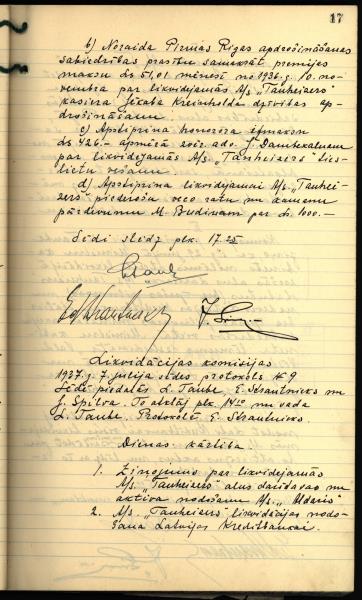 17
b) Noraida Pirmās Rīgas apdrošināšanas
sabiedrības prasību samaksāt premijes
maksu Ls 51,01 mēnesī no 1936.g. 10. no-
vembra par likvidējamās A/s "Tanheizers"
kasiera Jēkaba Kreicholda dzīvības ap-
drošināšanu.
c) Apstiprina honorāra izmaksu
Ls 426.- apmērā zvēr. adv. J.
par likvidējamās A/s. "Tanheizers" lies-
lietu vešanu.
d) Apstiprina likvidējamai A/s. "Tanhei-
zers" piederošo veco ratu un kamanu
pārdevumu M. Budiņam par Ls. 1000.-
Sēdi slēdz plk. 17.25
Likvidācijas komisijas
1937.g. 7. jūlija sēdes protokols № 9
Sēdē piedalās L. Taube, E. Strautnieks un
J. Spilva. To atklāj plk. 14.10 un vada
L. Taube. Protokolē E. Strautnieks.
Dienas kārtība.
1. Ziņojums par likvidējamās
A/s. "Tanheizers" alus darītavas un
aktīva nodošanu A/s. "Aldaris"
2. A/s. "Tanheizers" likvidācijas nodo-
šana Latvijas Kreditbankai.